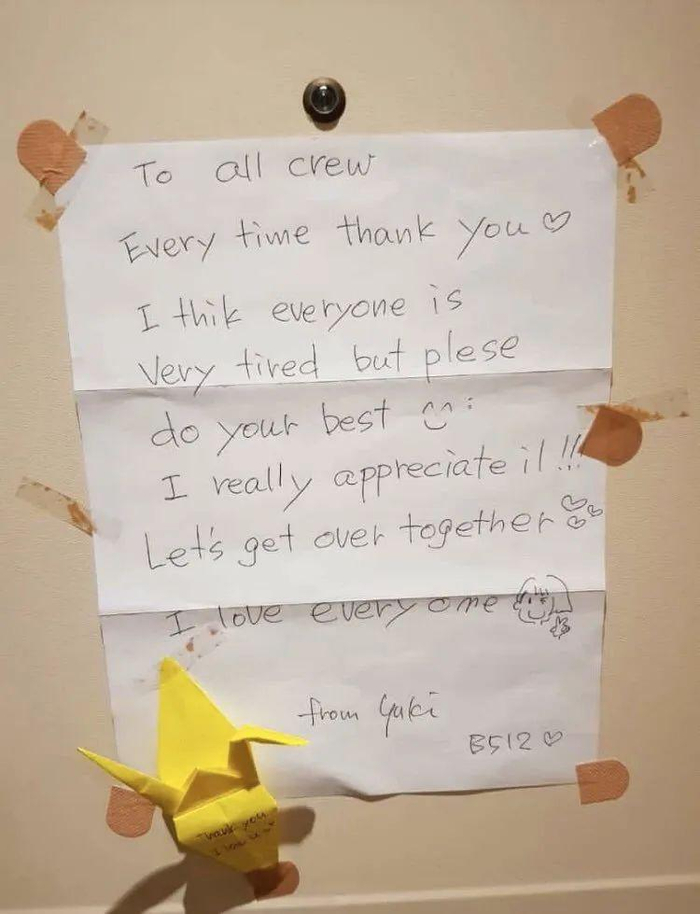 To all crew
Every time thank you ♡
I thik everyone is
very tired but plese
do your best
I really appreciate it!!!
Let's get over together
I love everyone
from Yuki
B512 ♡
Thank you
I love u